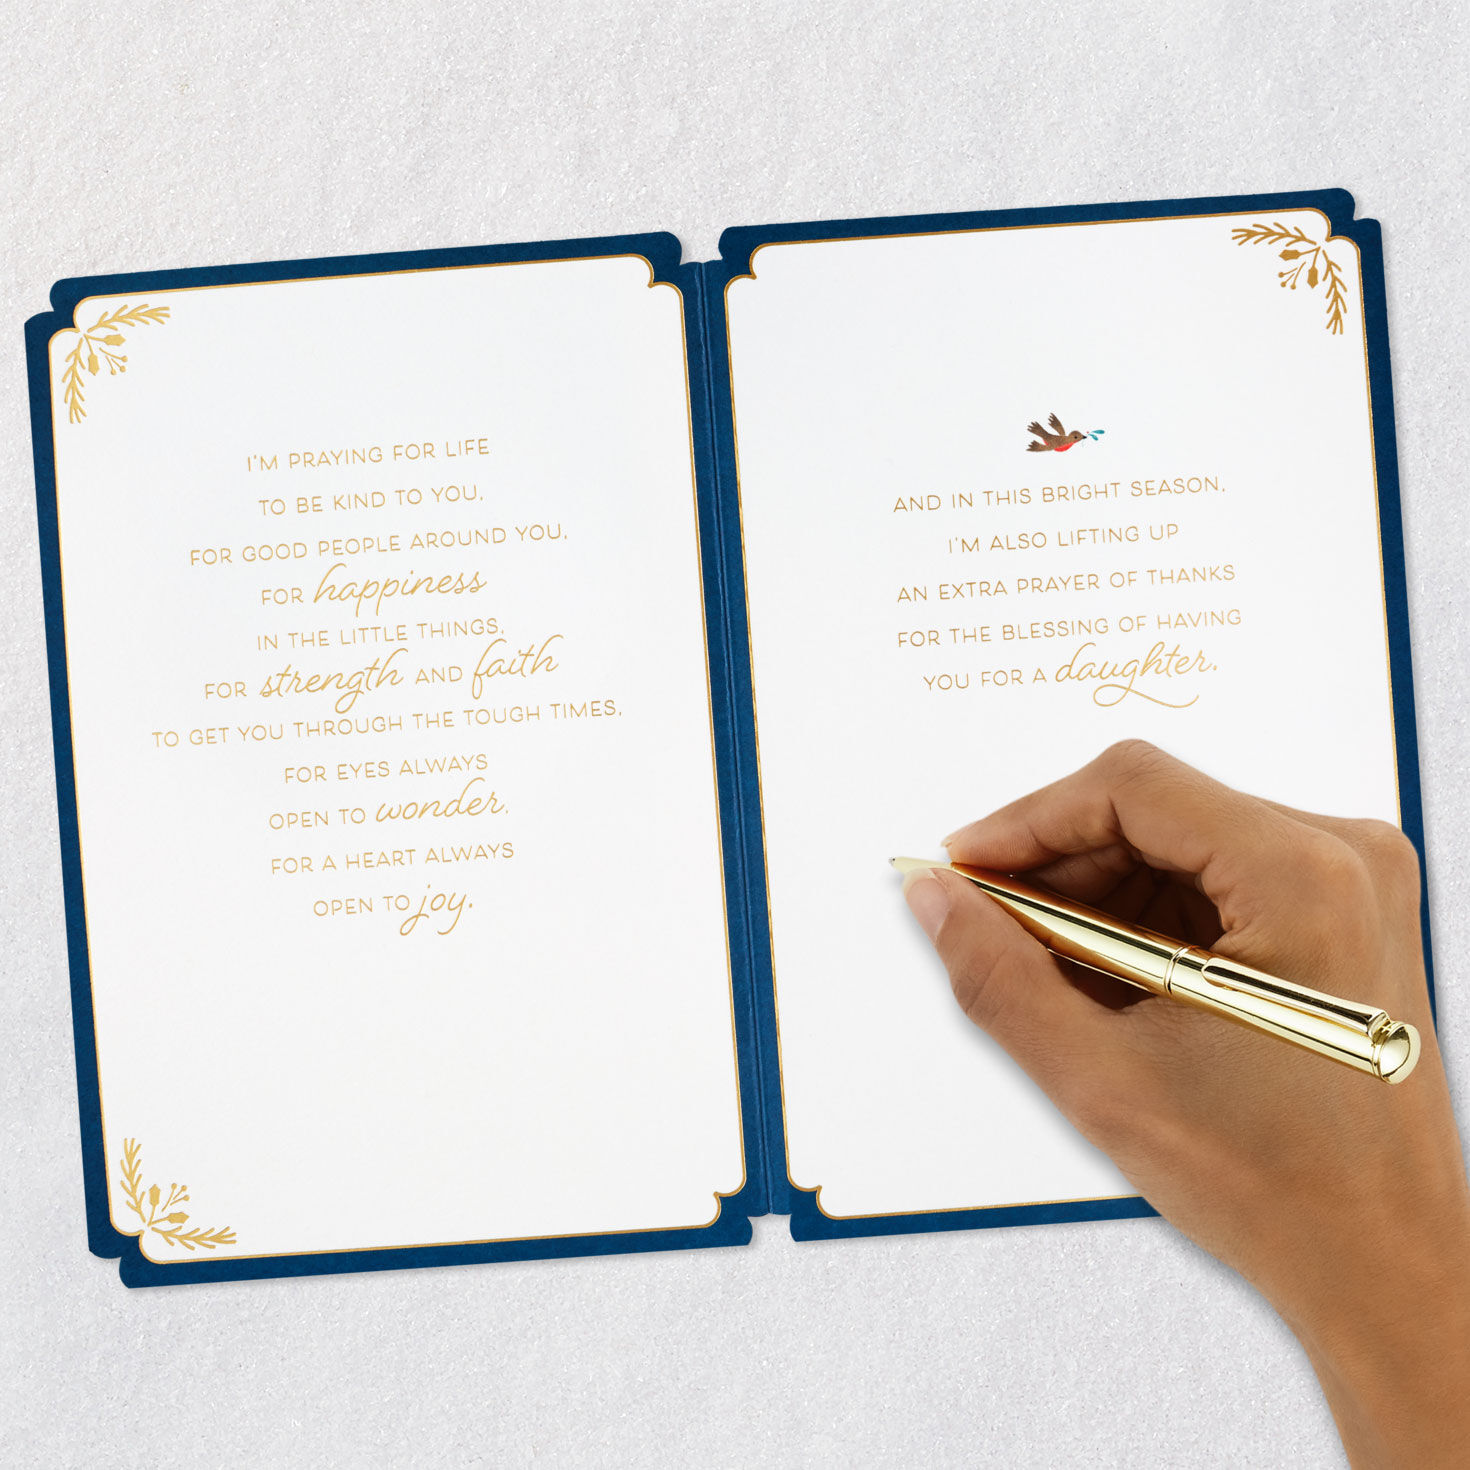 I'M PRAYING FOR LIFE
TO BE KIND TO YOU,
FOR GOOD PEOPLE AROUND YOU,
FOR happiness
IN THE LITTLE THINGS,
FOR strength AND faith
TO GET YOU THROUGH THE TOUGH TIMES,
FOR EYES ALWAYS
OPEN TO wonder,
FOR A HEART ALWAYS
OPEN TO joy.
AND IN THIS BRIGHT SEASON,
I'M ALSO LIFTING UP
AN EXTRA PRAYER OF THANKS
FOR THE BLESSING OF HAVING
YOU FOR A daughter.